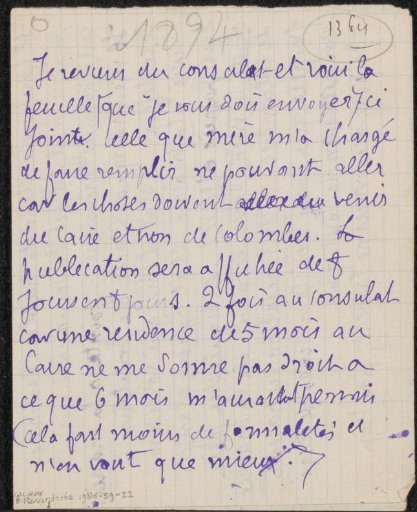 1894
1364
Je reviens du consulat et voici la
feuille (que je vous dois envoyer) ci
jointe. Celle que mère m'a chargé
de faire remplir ne pouvant aller
car les choses doivent venir
du Caire et non de Colombes. La
publication sera affichée de 8
jours en 8 jours. 2 fois au consulat
car une residence de 5 mois au
Caire ne me donne pas droit a
ce que 6 mois m'aurait permis
(cela fait moins de formalités et
n'en vaut que mieux.)
1980-59-22